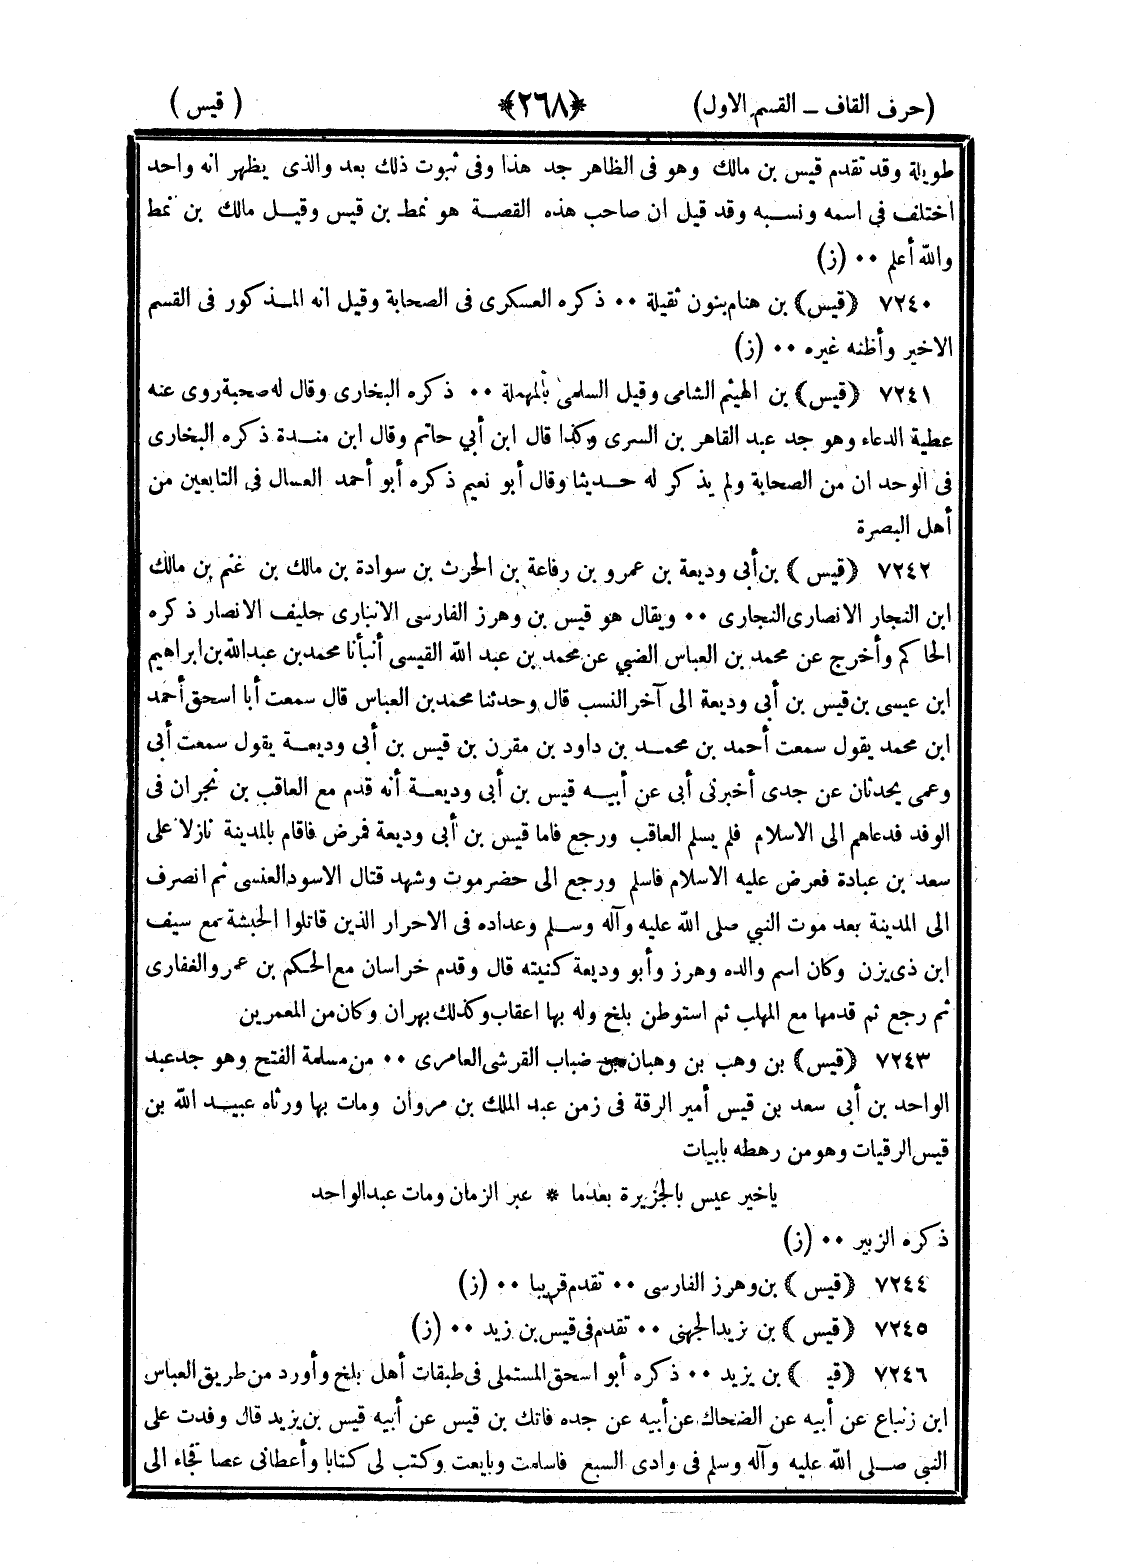 (حرف القاف ــ القسم الاول) ﴿٢٦٨﴾ ( قيس )
طويلة وقد تقدم قيس بن مالك وهو فى الظاهر جد هذا وفى ثبوت ذلك بعد والذى يظهر انه واحد
اختلف فى اسمه ونسبه وقد قيل ان صاحب هذه القصة هو نمط بن قيس وقيل مالك بن نمط
والله أعلم ٠٠ (ز)
٧٢٤٠ ﴿قيس﴾ بن هنام بنون ثقيلة ٠٠ ذكره العسكرى فى الصحابة وقيل انه المذكور فى القسم
الاخير وأظنه غيره ٠٠ (ز)
٧٢٤١ ﴿قيس﴾ بن الهيثم الشامى وقيل السلمى بالمهملة ٠٠ ذكره البخارى وقال له صحبة روى عنه
عطية الدعاء وهو جد عبد القاهر بن السرى وكذا قال ابن أبي حاتم وقال ابن مندة ذكره البخارى
فى الوحدان من الصحابة ولم يذكر له حديثا وقال أبو نعيم ذكره أبو أحمد العسال فى التابعين من
أهل البصرة
٧٢٤٢ ﴿قيس﴾ بن أبى وديعة بن عمرو بن رفاعة بن الحرث بن سوادة بن مالك بن غنم بن مالك
ابن النجار الانصارى النجارى ٠٠ ويقال هو قيس بن وهرز الفارسى الانبارى حليف الانصار ذكره
الحاكم وأخرج عن محمد بن العباس الضبي عن محمد بن عبد الله القيسى أنبأنا محمد بن عبد الله بن ابراهيم
ابن عيسى بن قيس بن أبى وديعة الى آخر النسب قال وحدثنا محمد بن العباس قال سمعت أبا اسحق أحمد
ابن محمد يقول سمعت أحمد بن محمد بن داود بن مقرن بن قيس بن أبى وديعة يقول سمعت أبى
وعمى يحدثان عن جدى أخبرنى أبى عن أبيه قيس بن أبى وديعة أنه قدم مع العاقب بن نجران فى
الوفد فدعاهم الى الاسلام فلم يسلم العاقب ورجع فاما قيس بن أبى وديعة فمرض فاقام بالمدينة نازلا على
سعد بن عبادة فعرض عليه الاسلام فاسلم ورجع الى حضرموت وشهد قتال الاسود العنسى ثم انصرف
الى المدينة بعد موت النبي صلى الله عليه وآله وسلم وعداده فى الاحرار الذين قاتلوا الحبشة مع سيف
ابن ذى يزن وكان اسم والده وهرز وأبو وديعة كنيته قال وقدم خراسان مع الحكم بن عمرو الغفارى
ثم رجع ثم قدمها مع المهلب ثم استوطن بلخ وله بها اعقاب وكذلك بهران وكان من المعمرين
٧٢٤٣ ﴿قيس﴾ بن وهب بن وهبان بن ضباب القرشى العامرى ٠٠ من مسلمة الفتح وهو جد عبد
الواحد بن أبى سعد بن قيس أمير الرقة فى زمن عبد الملك بن مروان ومات بها ورثاه عبيد الله بن
قيس الرقيات وهو من رهطه بابيات
ياخير عيس بالجزيرة بعدما * عبر الزمان ومات عبد الواحد
ذكره الزبير ٠٠ (ز)
٧٢٤٤ ﴿قيس﴾ بن وهرز الفارسى ٠٠ تقدم قريبا ٠٠ (ز)
٧٢٤٥ ﴿قيس﴾ بن يزيد الجهنى ٠٠ تقدم فى قيس بن زيد ٠٠ (ز)
٧٢٤٦ ﴿قي ﴾ بن يزيد ٠٠ ذكره أبو اسحق المستملى فى طبقات أهل بلخ وأورد من طريق العباس
ابن زنباع عن أبيه عن الضحاك عن أبيه عن جده فاتك بن قيس عن أبيه قيس بن يزيد قال وفدت على
النبى صلى الله عليه وآله وسلم فى وادى السبع فاسلمت وبايعت وكتب لى كتابا وأعطانى عصا فجاء الى